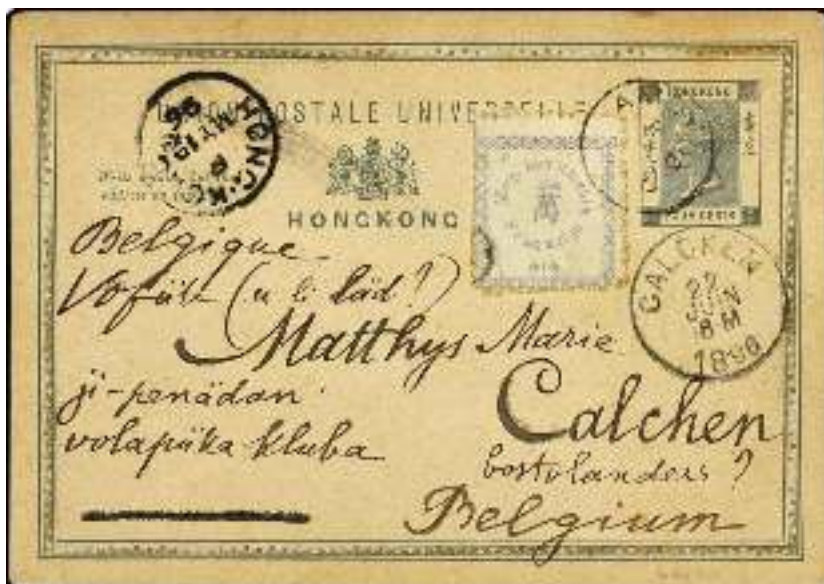 UNION POSTALE UNIVERSELLE
HONGKONG
HONG-KONG
MY 19
96
HONG KONG
Belgique
Matthys Marie
ji-penädan
volapüka-kluba
Calchen
bostolanders?
Belgium
CALCKEN
22
JUIN
8 M
1896